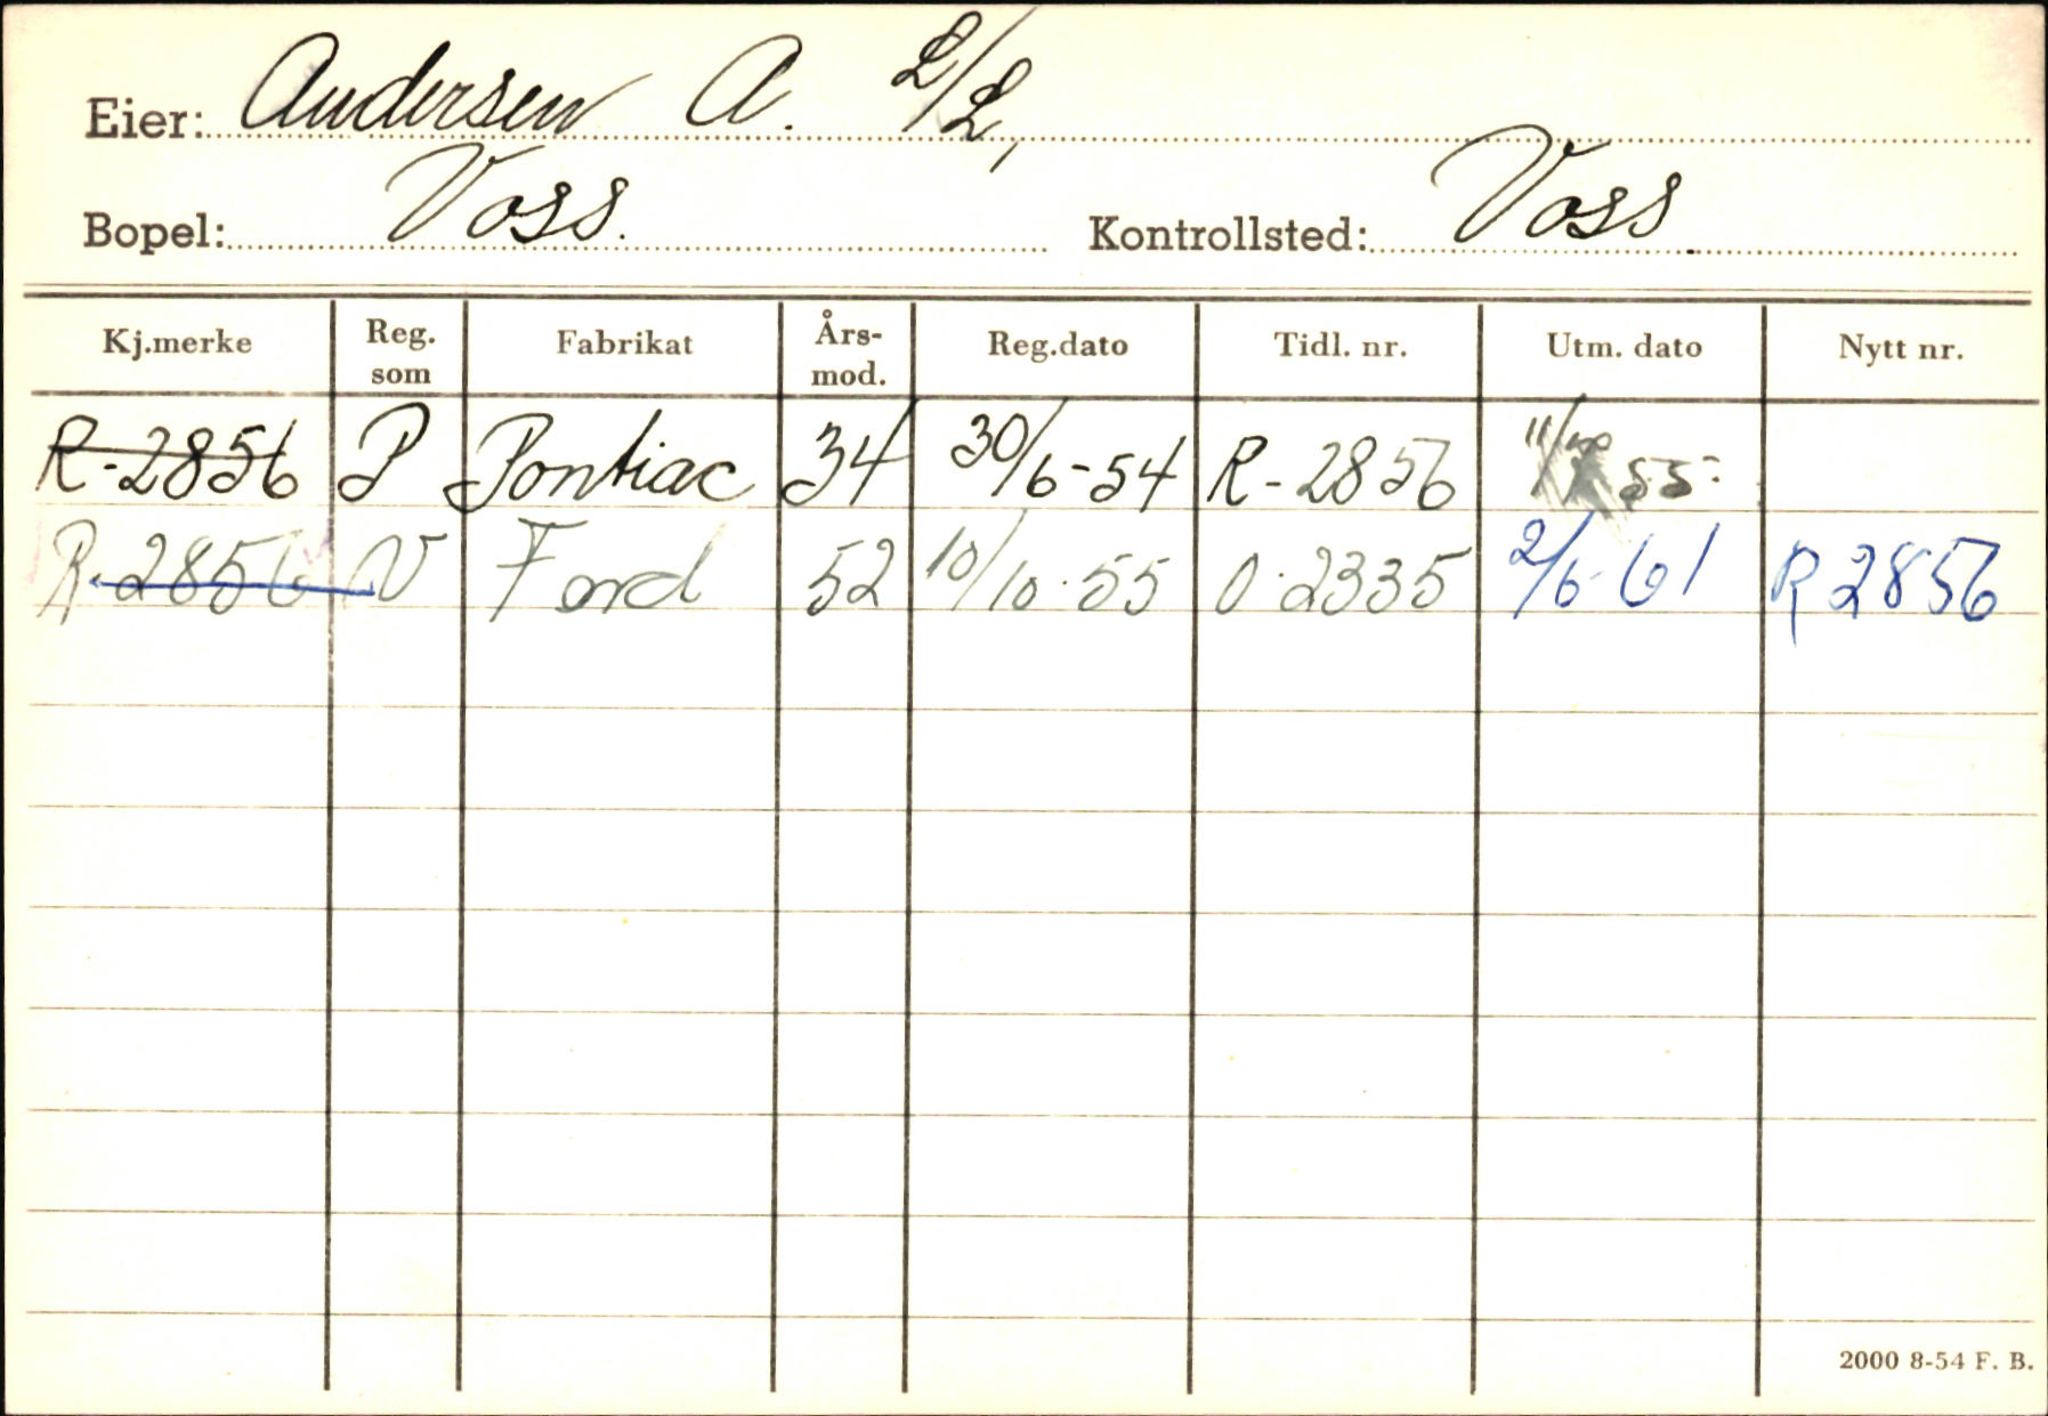 Eier: Andersen A. L/L,
Bopel: Voss. Kontrollsted: Voss
Kj.merke Reg. som Fabrikat Års-mod. Reg.dato Tidl. nr. Utm. dato Nytt nr.
R-2856 P Pontiac 34 30/6-54 R-2856 11/10 55
R-2856 V Ford 52 10/10.55 O.2335 2/6-61 R2856
2000 8-54 F. B.